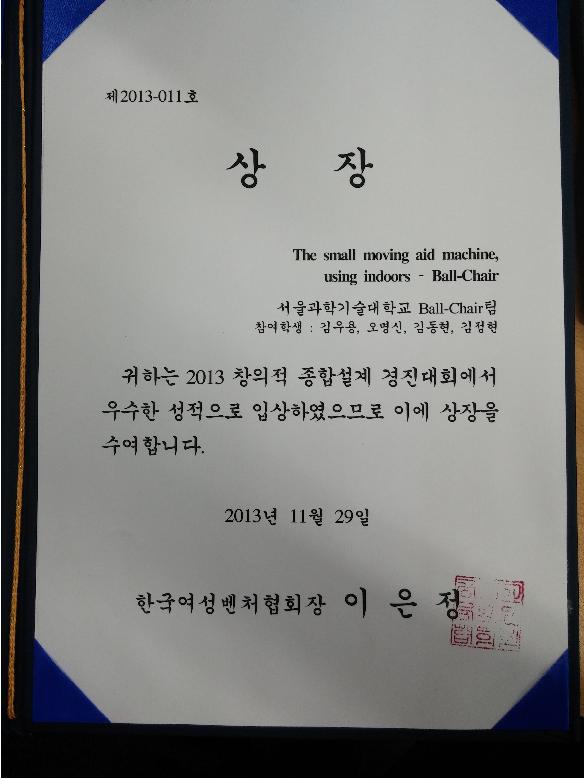 제2013-011호
상 장
The small moving aid machine,
using indoors - Ball-Chair
서울과학기술대학교 Ball-Chair팀
참여학생 : 김우용, 오명신, 김동현, 김정현
귀하는 2013 창의적 종합설계 경진대회에서
우수한 성적으로 입상하였으므로 이에 상장을
수여합니다.
2013년 11월 29일
한국여성벤처협회장 이 은 정